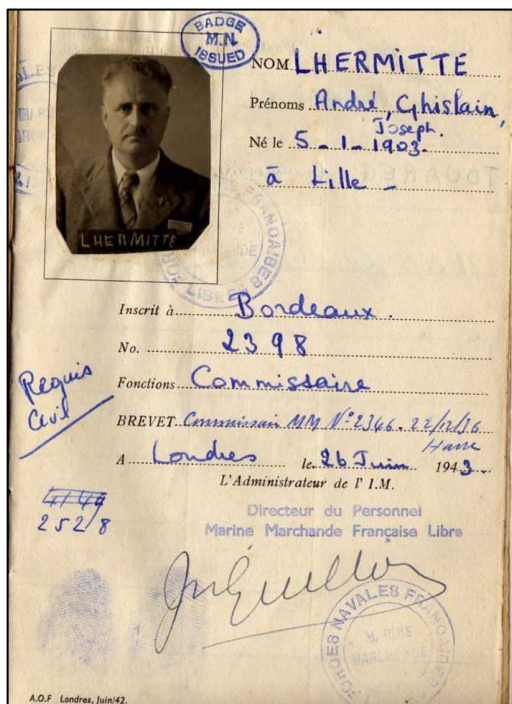 BADGE
M.N.
ISSUED
NOM LHERMITTE
Prénoms André, Ghislain,
Joseph.
Né le 5 - 1 - 1903.
à Lille -
LHERMITTE
Inscrit à Bordeaux.
No. 2398
Fonctions Commissaire
Requis
Civil
BREVET Commissaire MM N° 2346. 22/12/36
Havre
A Londres le 26 Juin 1943.
L'Administrateur de l' I.M.
4149
252/8
Directeur du Personnel
Marine Marchande Française Libre
FORCES NAVALES FRANÇAISES
MARCHANDE
A.O.F Londres, Juin/42.